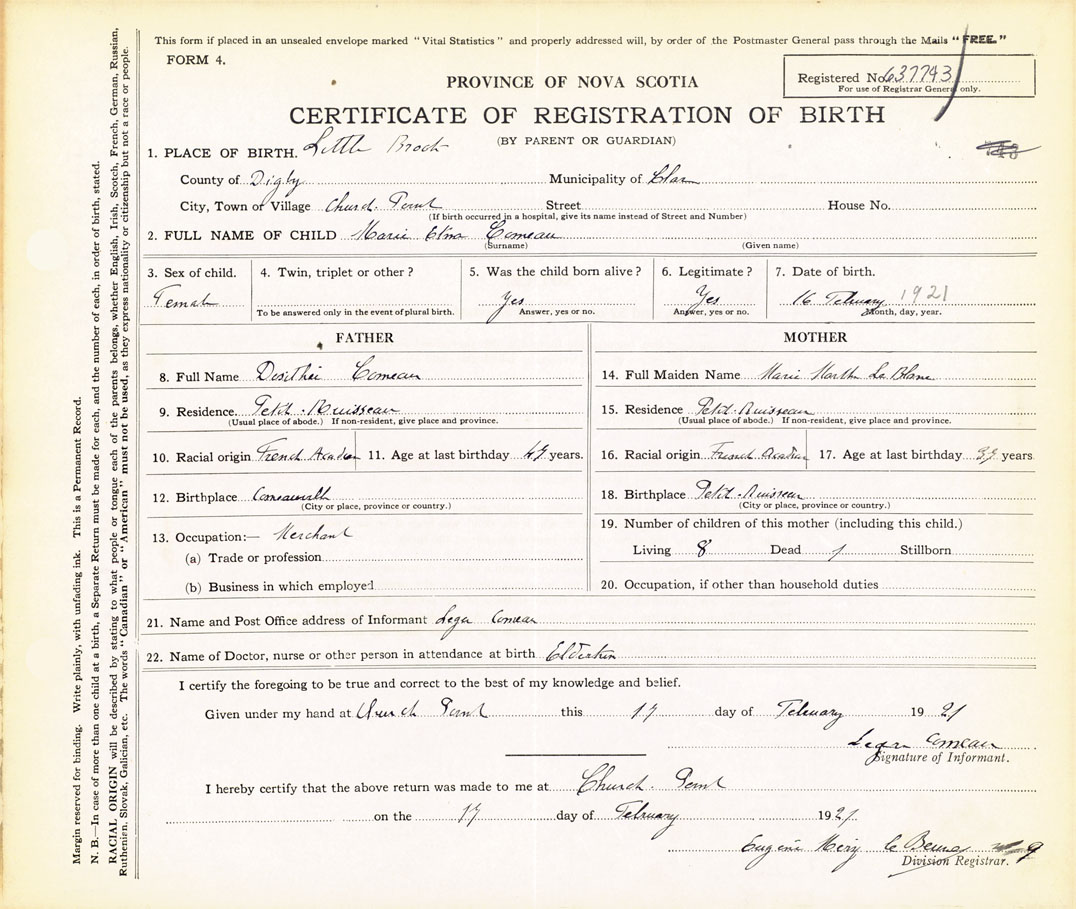 This form if placed in an unsealed envelope marked "Vital Statistics" and properly addressed will, by order of the Postmaster General pass through the Mails "FREE."
FORM 4.
Registered No. 637743
For use of Registrar General only.
PROVINCE OF NOVA SCOTIA
CERTIFICATE OF REGISTRATION OF BIRTH
(BY PARENT OR GUARDIAN)
1. PLACE OF BIRTH. Little Brook
County of Digby Municipality of Clare
City, Town or Village Church Point Street House No.
(If birth occurred in a hospital, give its name instead of Street and Number)
2. FULL NAME OF CHILD Marie Comeau
(Surname) (Given name)
3. Sex of child. 4. Twin, triplet or other? 5. Was the child born alive? 6. Legitimate? 7. Date of birth.
Female Yes Yes 16 February 1921
To be answered only in the event of plural birth. Answer, yes or no. Answer, yes or no. Month, day, year.
FATHER
8. Full Name Comeau
9. Residence. Petit-Ruisseau
(Usual place of abode.) If non-resident, give place and province.
10. Racial origin French Acadian 11. Age at last birthday years.
12. Birthplace Comeauville
(City or place, province or country.)
13. Occupation:— Merchant
(a) Trade or profession
(b) Business in which employed
MOTHER
14. Full Maiden Name Marie Marthe Le Blanc
15. Residence Petit-Ruisseau
(Usual place of abode.) If non-resident, give place and province.
16. Racial origin French Acadian 17. Age at last birthday years
18. Birthplace Petit-Ruisseau
(City or place, province or country.)
19. Number of children of this mother (including this child.)
Living 8 Dead 1 Stillborn
20. Occupation, if other than household duties
21. Name and Post Office address of Informant Comeau
22. Name of Doctor, nurse or other person in attendance at birth Elderkin
I certify the foregoing to be true and correct to the best of my knowledge and belief.
Given under my hand at Church Point this 17 day of February 1921
Comeau
Signature of Informant.
I hereby certify that the above return was made to me at Church Point
on the 17 day of February 1921.
Eugène
Division Registrar.
Margin reserved for binding. Write plainly, with unfading ink. This is a Permanent Record.
N. B.—In case of more than one child at a birth, a Separate Return must be made for each, and the number of each, in order of birth, stated.
RACIAL ORIGIN will be described by stating to what people or tongue each of the parents belongs, whether English, Irish, Scotch, French, German, Russian,
Ruthenien, Slovak, Galician, etc. The words "Canadian" or "American" must not be used, as they express nationality or citizenship but not a race or people.